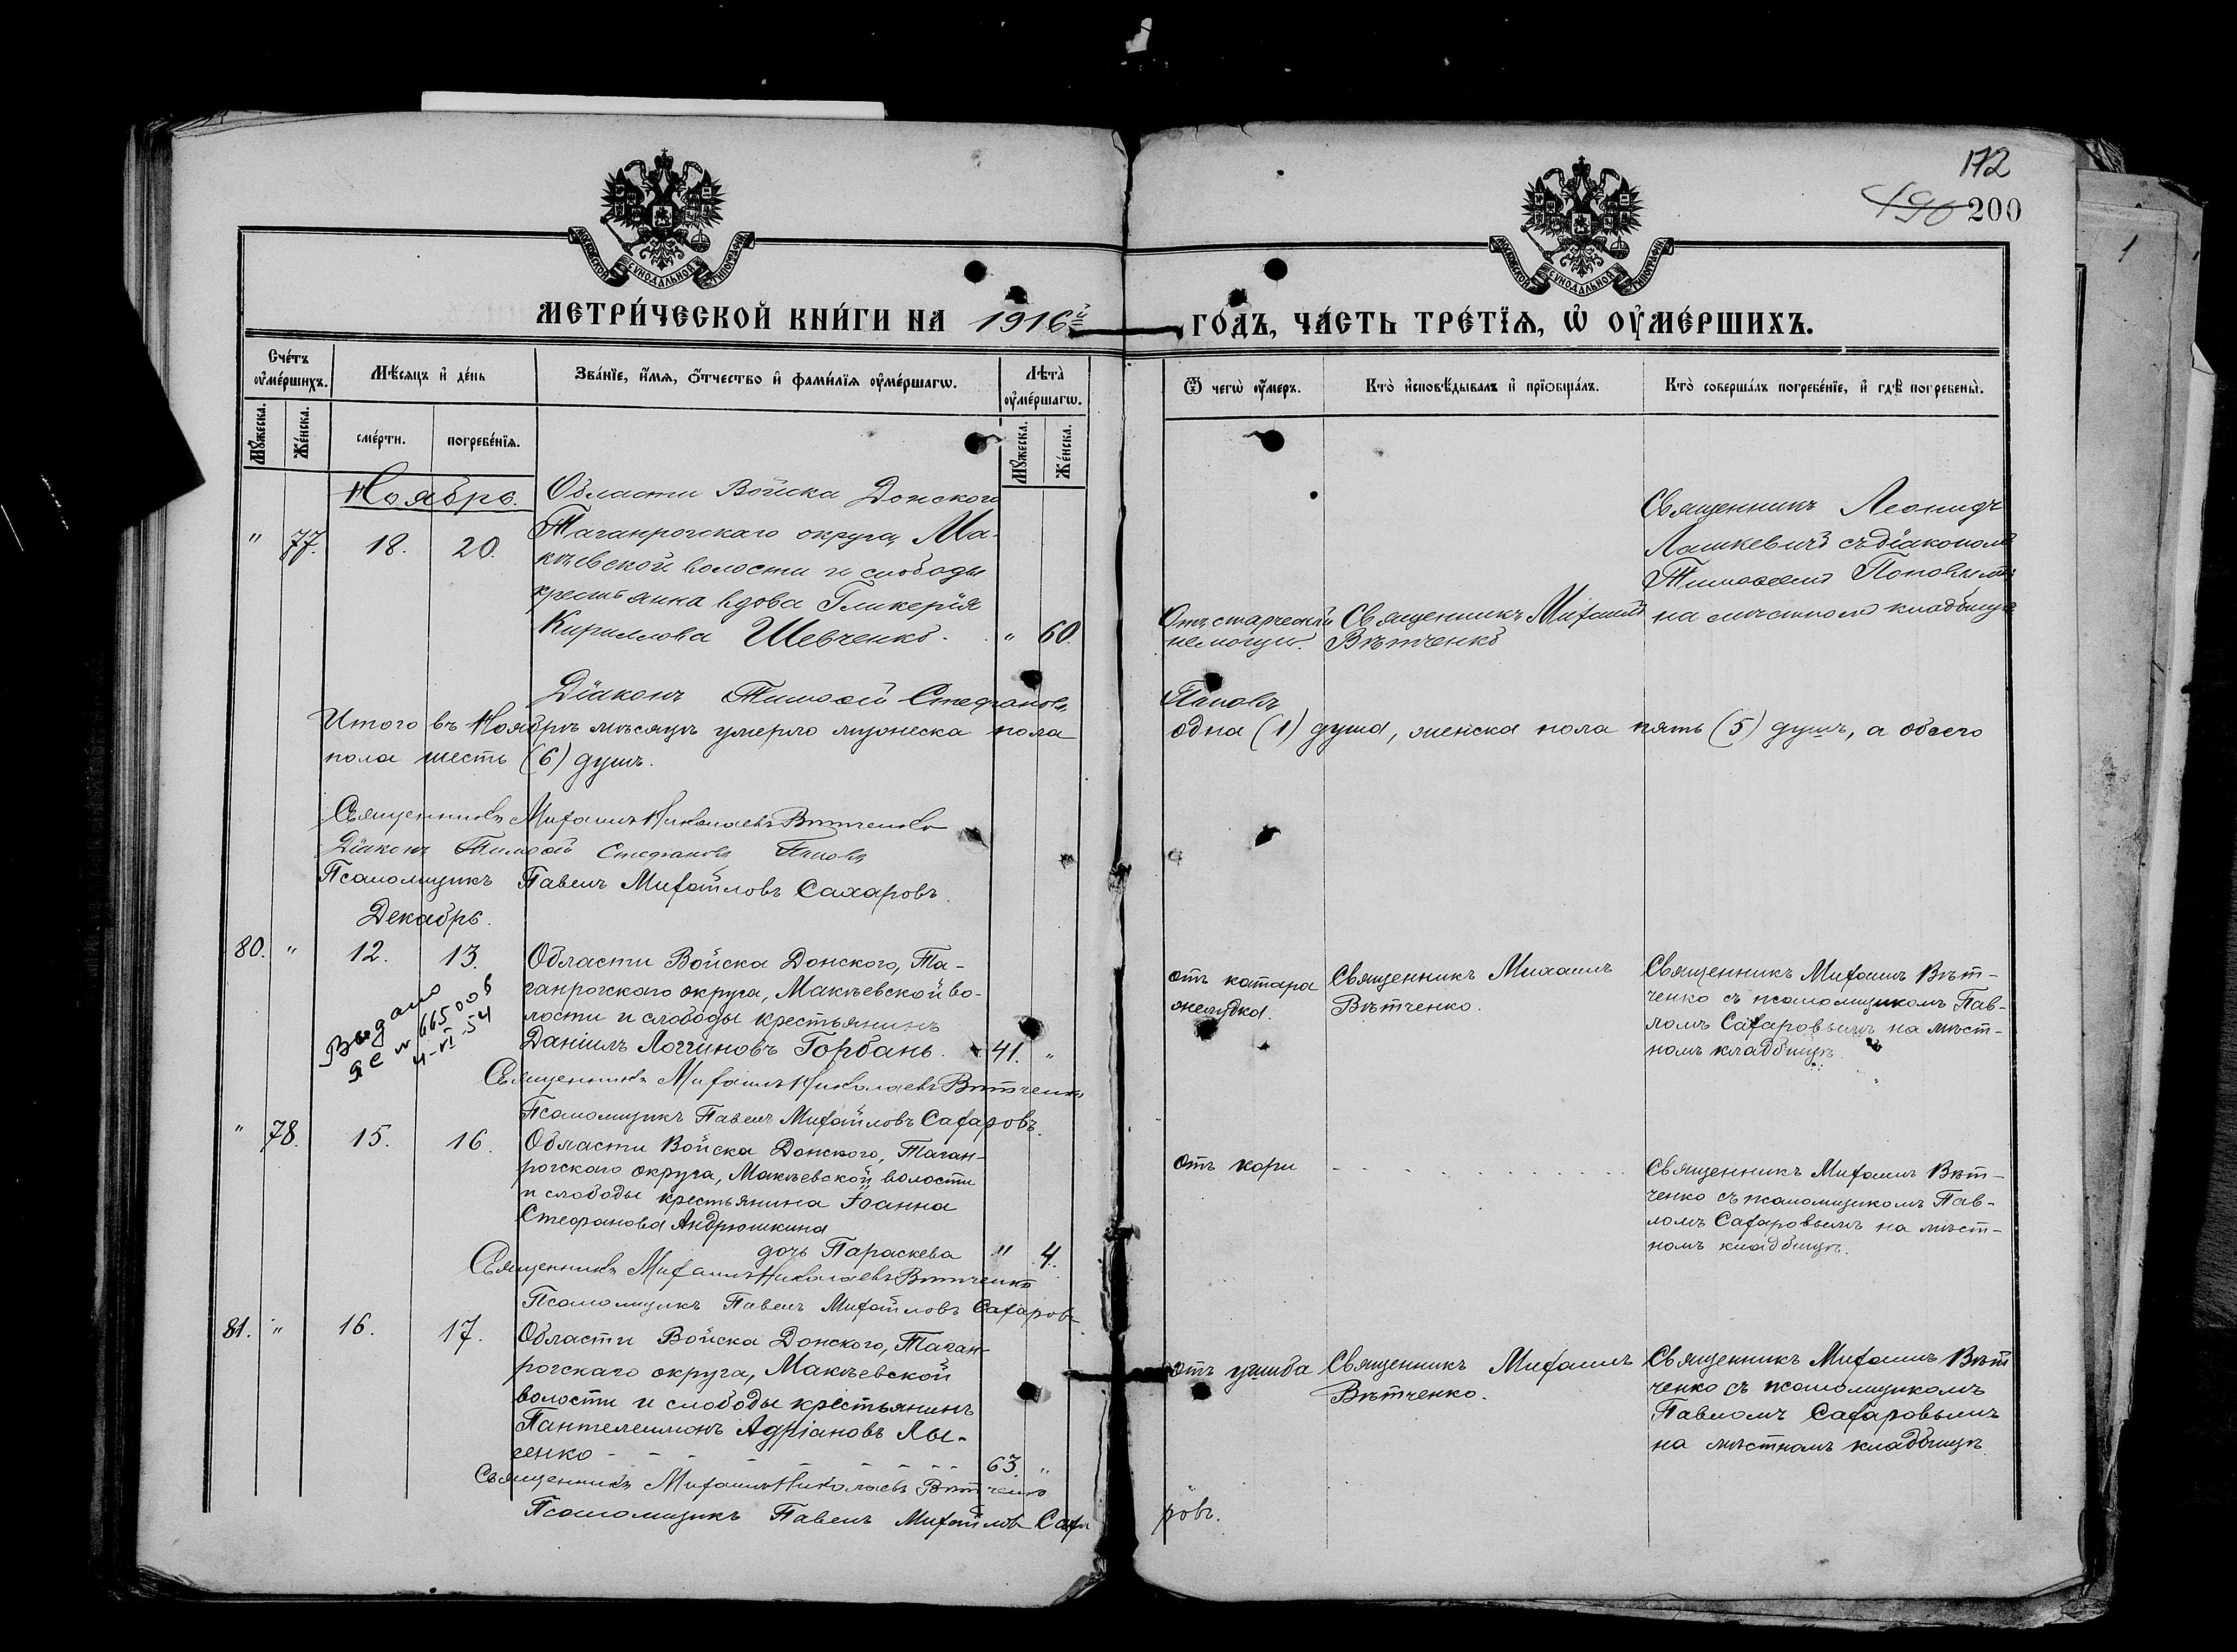 172
190 200
МОСКОВСКОЙ СѴНОДАЛЬНОЙ ТИПОГРАФІИ
МОСКОВСКОЙ СѴНОДАЛЬНОЙ ТИПОГРАФІИ
МЕТРИ́ЧЕСКОЙ КНИ́ГИ НА 1916й
ГО́ДЪ, ЧА́СТЬ ТРЕ́ТЇѦ, Ѡ҆ ОУ҆МЕ́РШИХЪ.
Сче́тъ оу҆ме́ршихъ.
Мꙋ́жеска.
Же́нска.
Мѣ́сяцъ и҆ де́нь
сме́рти.
погребе́нїѧ.
Зва́нїе, и҆́мѧ, ѻ҆́тчество и҆ фами́лїѧ оу҆ме́ршагѡ.
Лѣта̀ оу҆ме́ршагѡ.
Мꙋ́жеска.
Же́нска.
Ѿ чегѡ̀ оу҆́меръ.
Кто̀ и҆сповѣ́дывалъ и҆ прїѻбща́лъ.
Кто̀ соверша́лъ погребе́нїе, и҆ гдѣ̀ погребены̀.
Ноябрь.
" 77. 18. 20.
Области Войска Донского
Таганрогскаго округа, Ма-
кѣевской волости и слободы
крестьянка вдова Гликерія
Кириллова Шевченко. " 60.
Отъ старческой
немощи.
Священникъ Михаилъ
Вѣтченко
Священникъ Леонидъ
Лашкевичъ съ діакономъ
Тимоѳеемъ Поповымъ
на мѣстномъ кладбищѣ
Діаконъ Тимоѳей Стефановъ Поповъ
Итого въ Ноябрѣ мѣсяцѣ умерло мужеска пола одна (1) душа, женска пола пять (5) душъ, а обоего
пола шесть (6) душъ.
Священникъ Михаилъ Николаевъ Вѣтченко
Діаконъ Тимоѳей Стефановъ Поповъ
Псаломщикъ Павелъ Михайловъ Сахаровъ.
Декабрь.
80. " 12. 13.
Области Войска Донского, Та-
ганрогскаго округа, Макѣевской во-
лости и слободы крестьянинъ
Даніилъ Логгиновъ Горбань. 41. "
Выдано
ЯС № 665006
4-VI-54
отъ катара
желудка.
Священникъ Михаилъ
Вѣтченко.
Священникъ Михаилъ Вѣт-
ченко съ псаломщикомъ Пав-
ломъ Сахаровымъ на мѣст-
номъ кладбищѣ.
Священникъ Михаилъ Николаевъ Вѣтченко
Псаломщикъ Павелъ Михайловъ Сахаровъ.
" 78. 15. 16.
Области Войска Донского, Таган-
рогскаго округа, Макѣевской волости
и слободы крестьянина Іоанна
Стефанова Андрюшкина
дочь Параскева " 4.
отъ кори
Священникъ Михаилъ Вѣт-
ченко съ псаломщикомъ Пав-
ломъ Сахаровымъ на мѣст-
номъ кладбищѣ.
Священникъ Михаилъ Николаевъ Вѣтченко
Псаломщикъ Павелъ Михайловъ Сахаровъ
81. " 16. 17.
Области Войска Донского, Таган-
рогскаго округа, Макѣевской
волости и слободы крестьянинъ
Пантелеимонъ Адріановъ Лы-
сенко 63. "
отъ ушиба
Священникъ Михаилъ
Вѣтченко.
Священникъ Михаилъ Вѣт
ченко съ псаломщикомъ
Павломъ Сахаровымъ
на мѣстномъ кладбищѣ.
Священникъ Михаилъ Николаевъ Вѣтченко
Псаломщикъ Павелъ Михайловъ Саха ровъ.
1